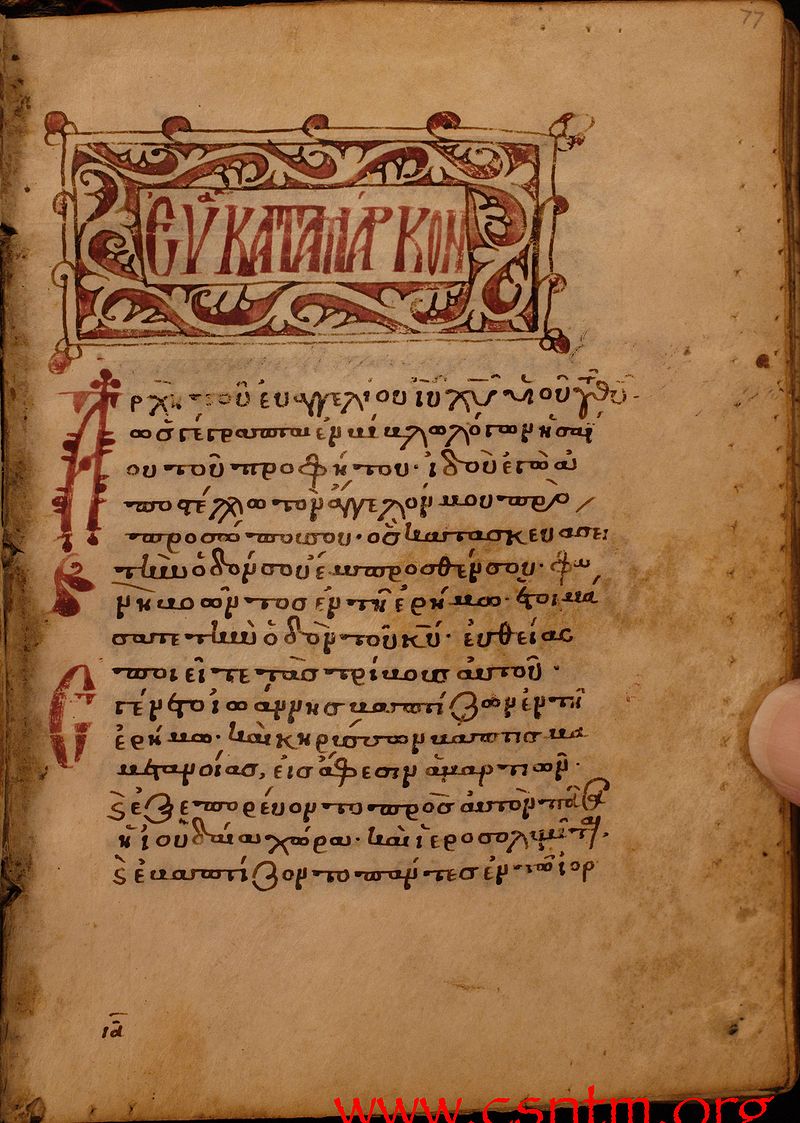 77
ΕΥ ΚΑΤΑ ΜΑΡΚΟΝ
Ἀρχὴ τοῦ εὐαγγελίου ἰυ χυ υἱοῦ τοῦ θυ·
ὡς γέγραπται ἐν
ου τοῦ προφήτου· ἰδοὺ ἐγὼ ἀ
ποστέλλω τὸν ἄγγελόν μου πρὸ
προσώπου σου· ὃς κατασκευάσει
τὴν ὁδόν σου ἔμπροσθέν σου· φω
νὴ βοῶντος ἐν τῆ ἐρήμω· ἑτοιμά
σατε τὴν ὁδὸν τοῦ κυ· εὐθείας
ποιεῖτε τὰς τρίβους αὐτοῦ·
Ἐγένετο ἰωάννης βαπτίζων ἐν τῆ
ἐρήμω· καὶ κηρύσσων βάπτισμα
μετανοίας, εἰς ἄφεσιν ἁμαρτιῶν·
ϗ ἐξεπορεύοντο πρὸς αὐτὸν πᾶσα
ἡ ἰουδαία χώρα· καὶ ἱεροσολυμῖται,
ϗ ἐβαπτίζοντο πάντες ἐν τῶ ἰορ
ια
www.csntm.org